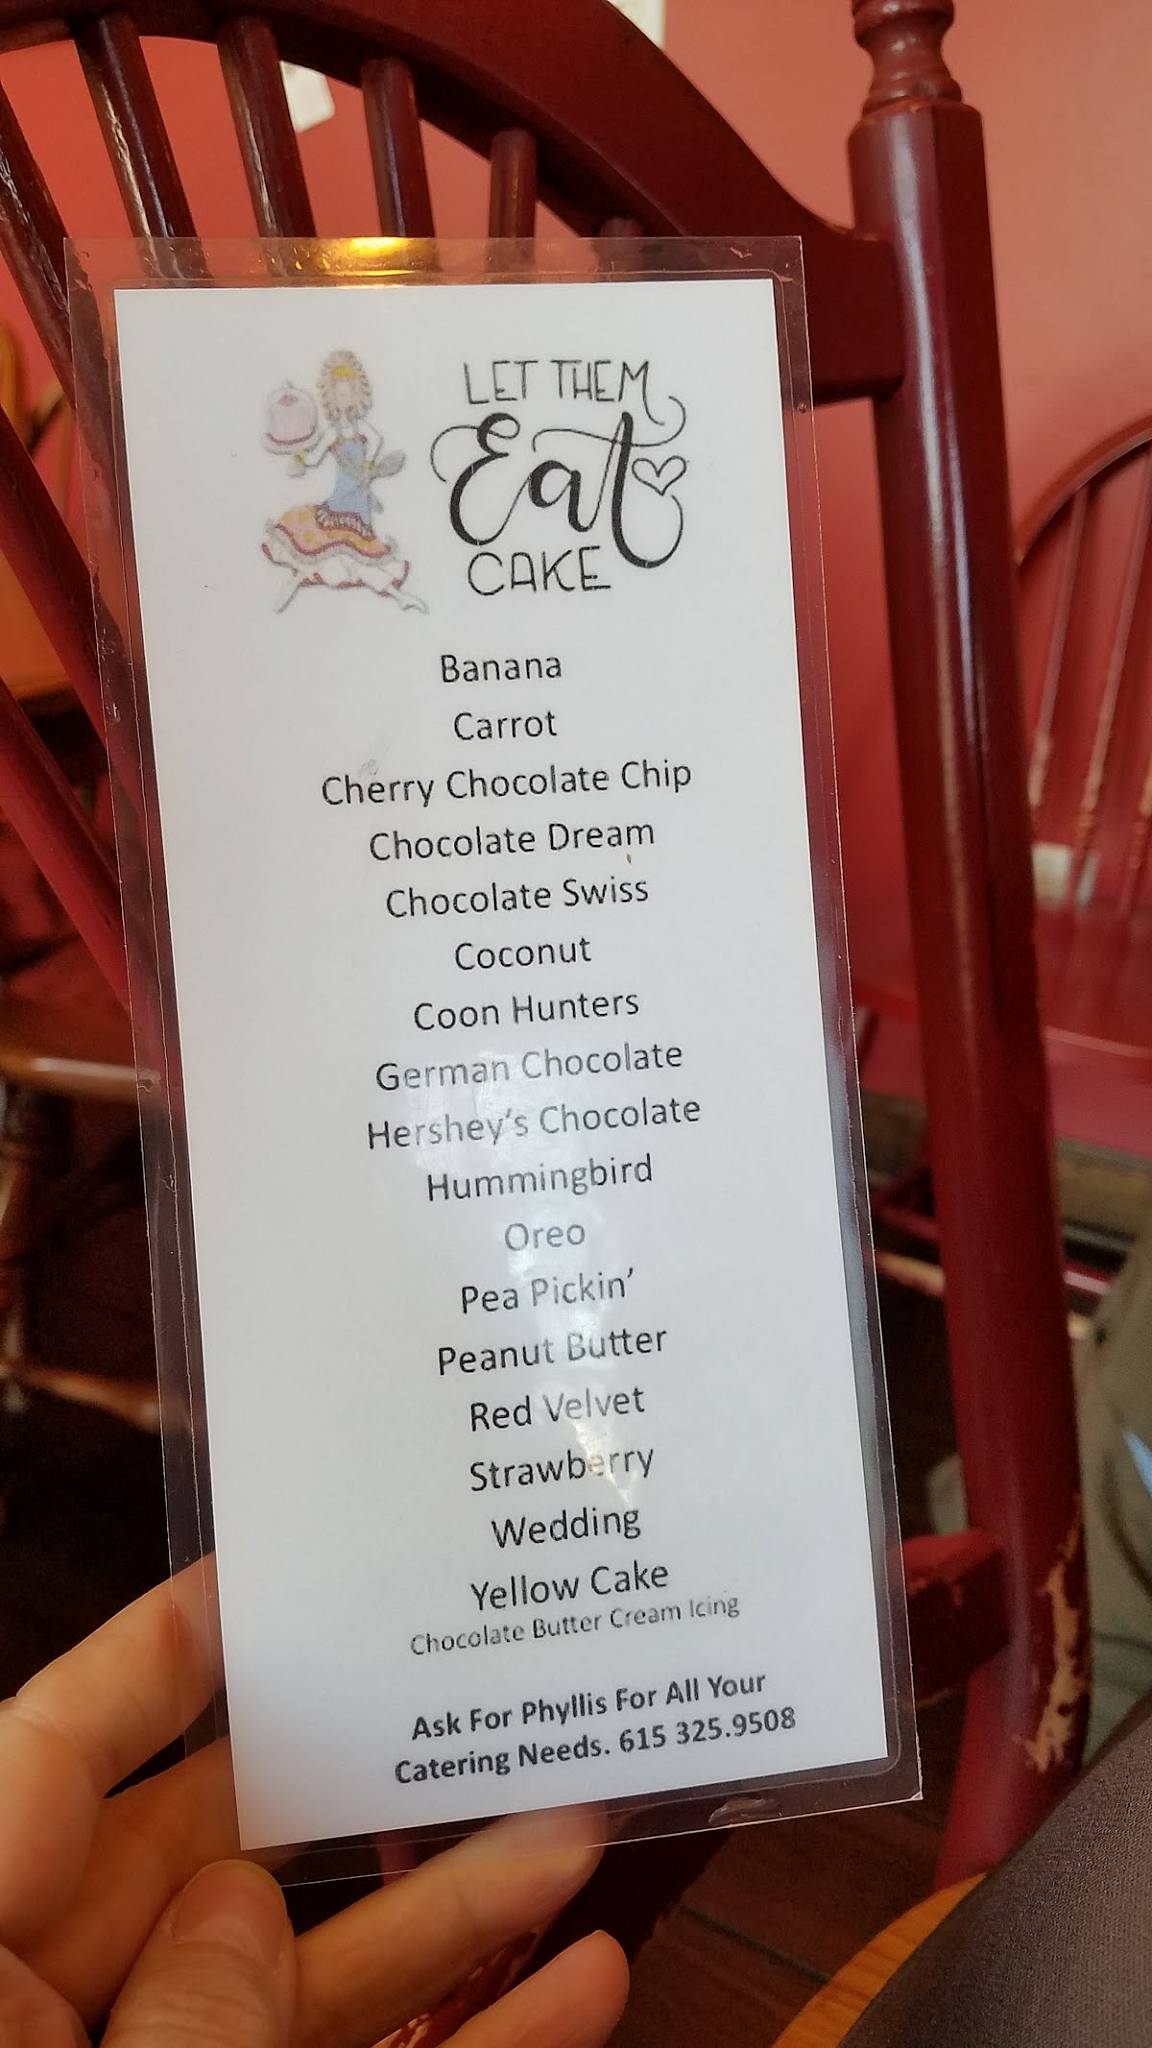 LET THEM
Eat
CAKE
Banana
Carrot
Cherry Chocolate Chip
Chocolate Dream
Chocolate Swiss
Coconut
Coon Hunters
German Chocolate
Hershey's Chocolate
Hummingbird
Oreo
Pea Pickin'
Peanut Butter
Red Velvet
Strawberry
Wedding
Yellow Cake
Chocolate Butter Cream Icing
Ask For Phyllis For All Your
Catering Needs. 615 325.9508